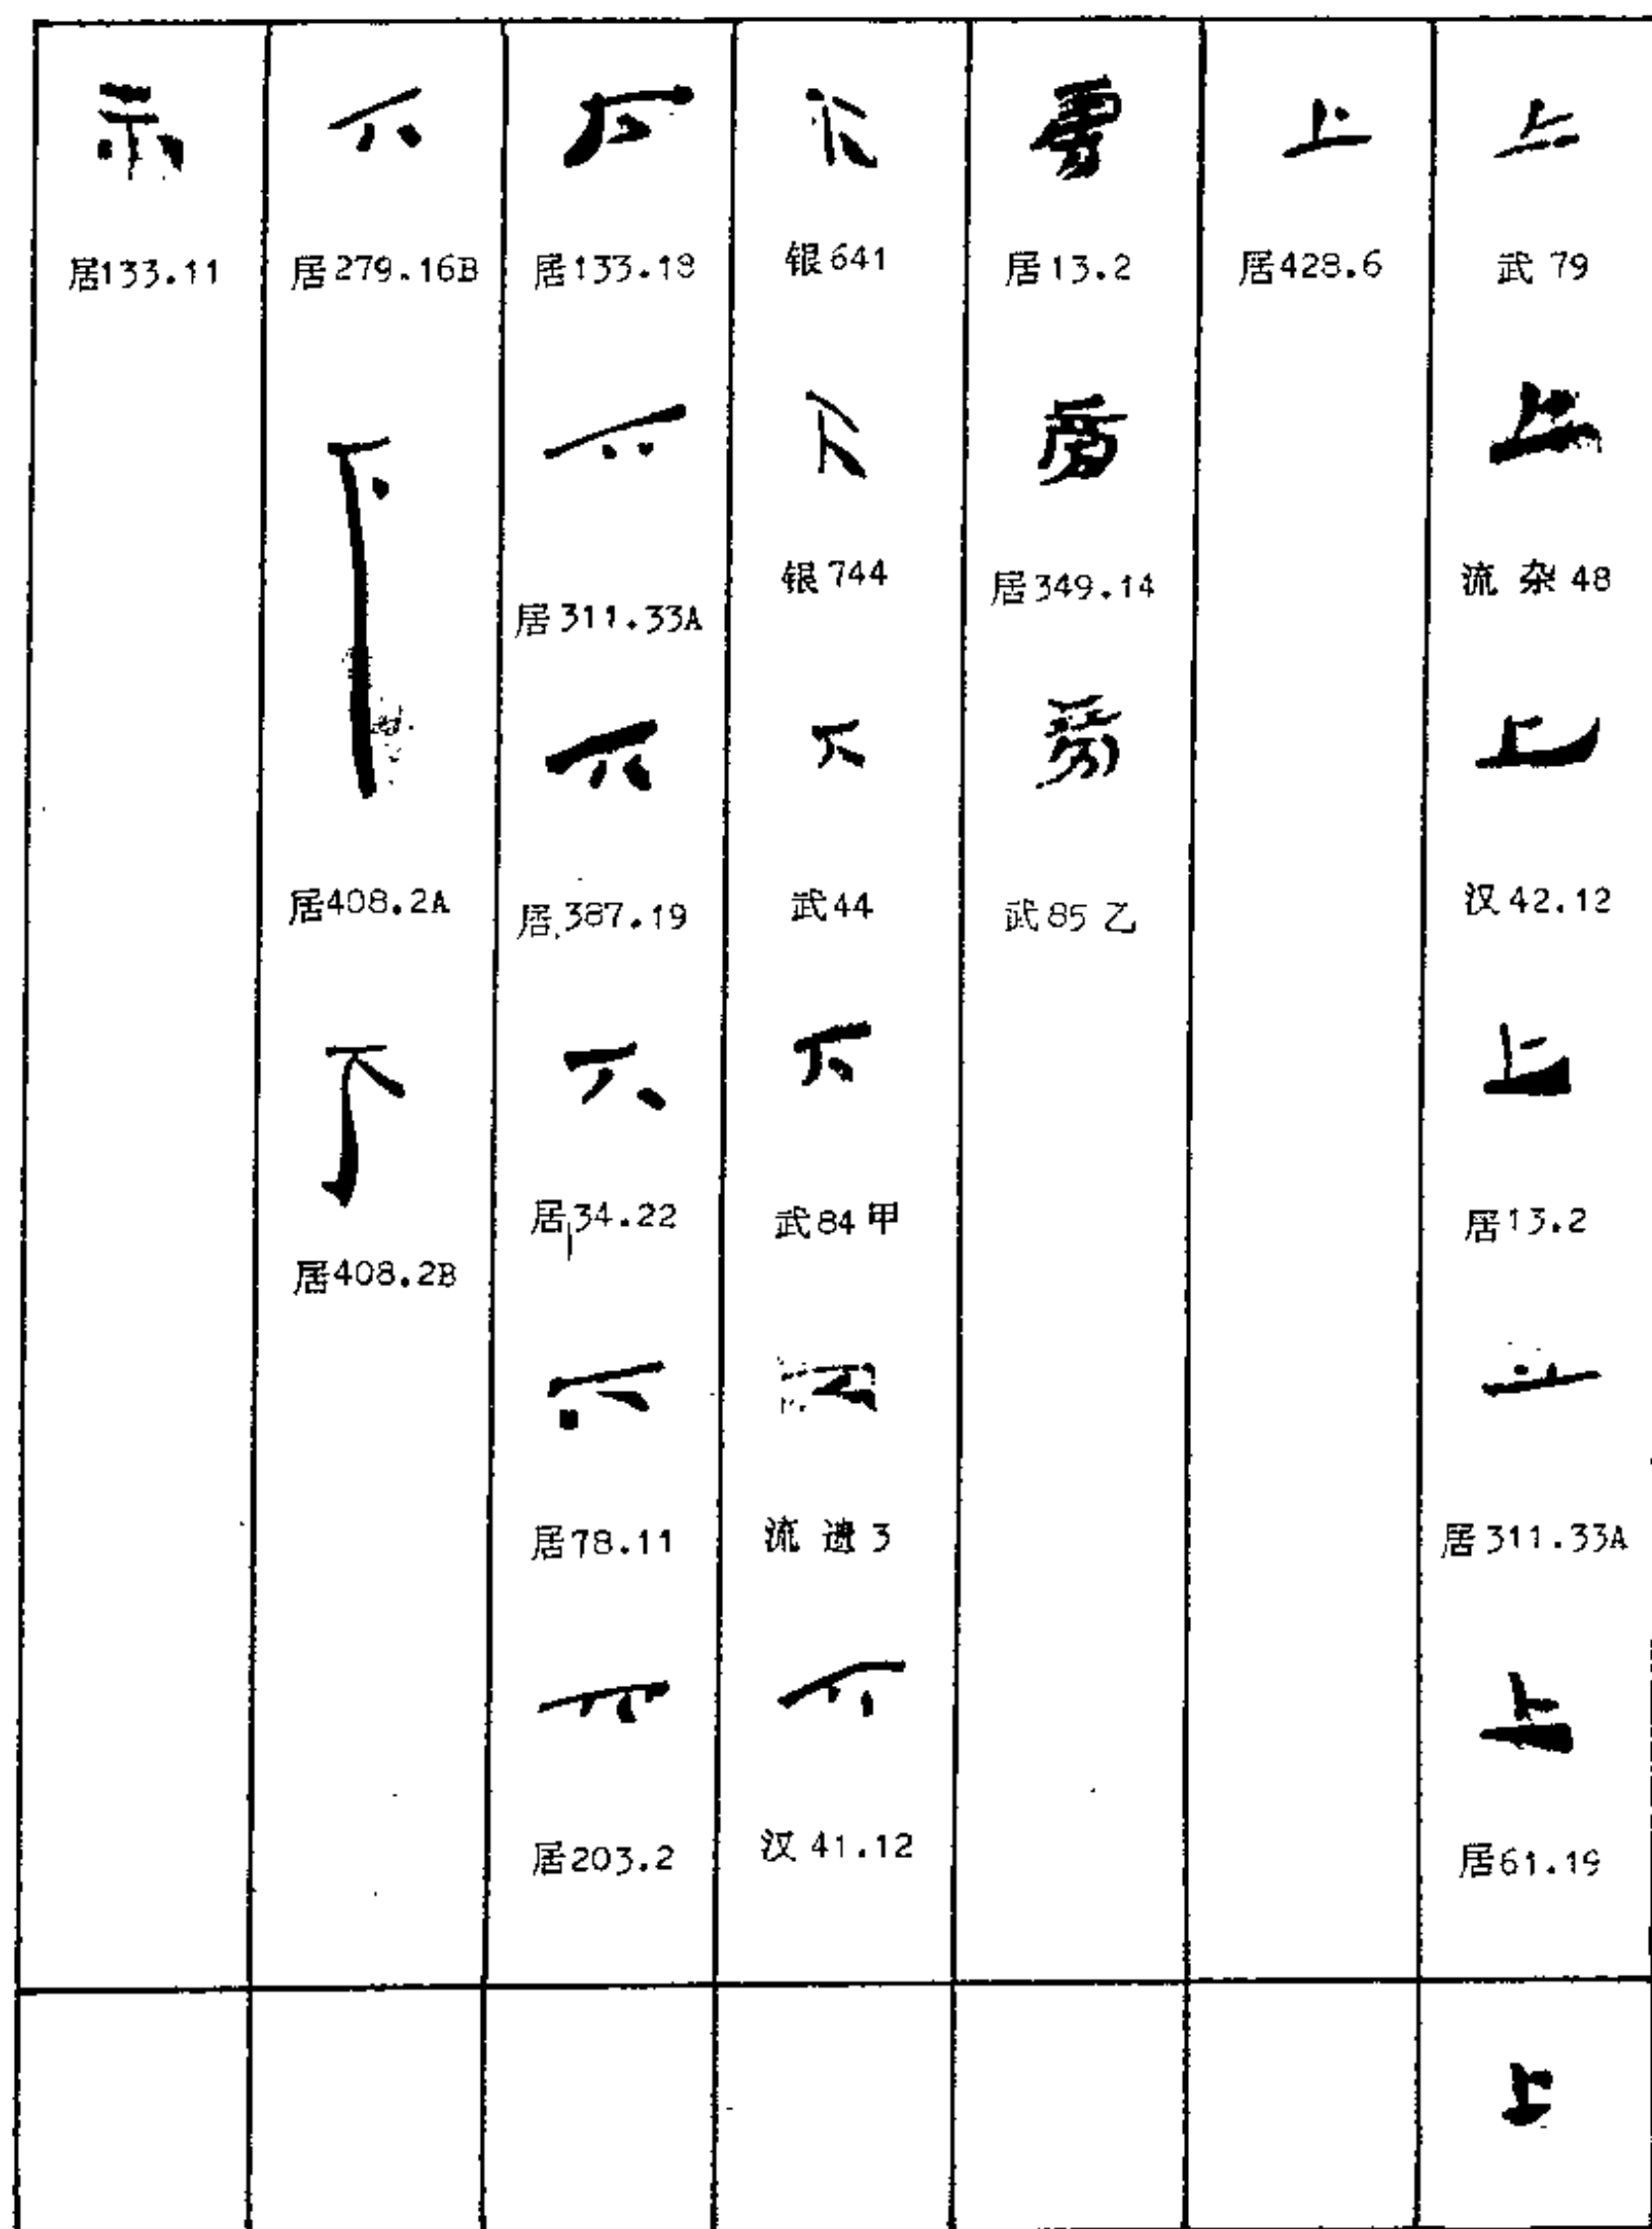 上
武 79
上
流 杂 48
上
汉 42.12
上
居13.2
上
居311.33A
上
居61.19
上
上
居428.6
旁
居13.2
旁
居349.14
旁
武85乙
下
银641
下
银744
下
武44
下
武84甲
下
流 遗 3
下
汉 41.12
下
下
居311.33A
下
居387.19
下
居34.22
下
居78.11
下
居203.2
下
居279.16B
下
居408.2A
下
居408.2B
示
居133.11